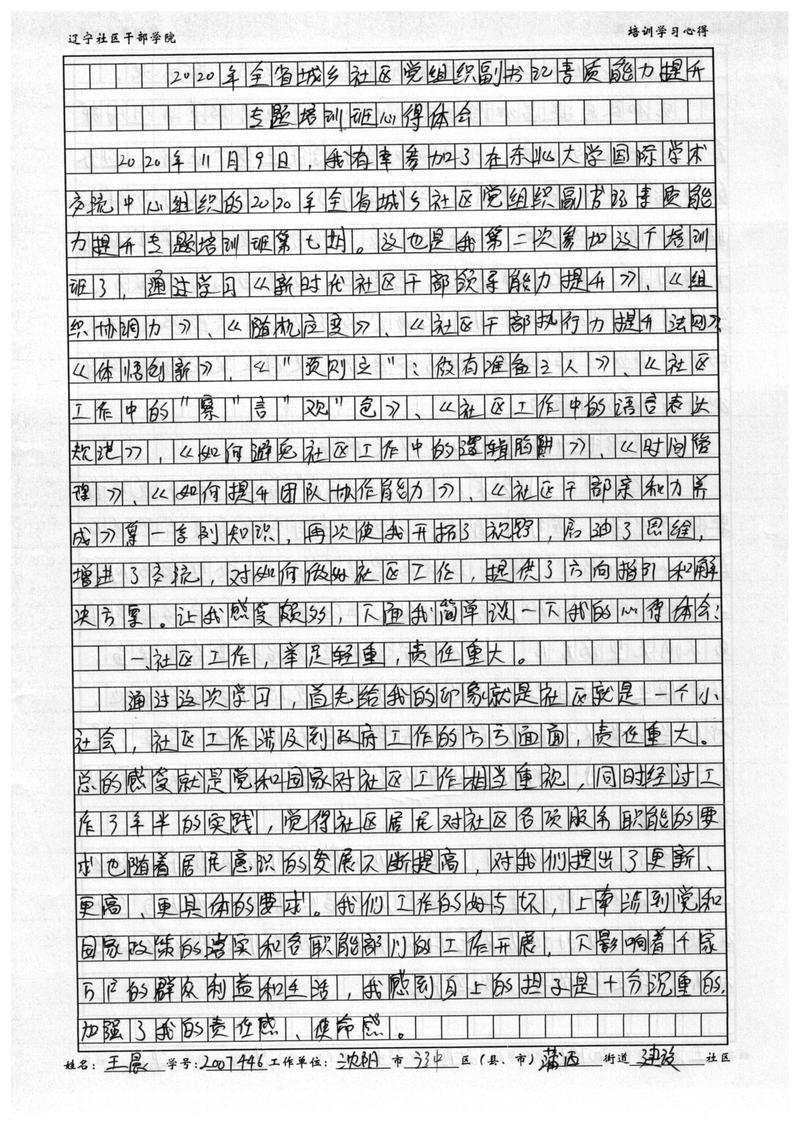 辽宁社区干部学院 培训学习心得
2020年全省城乡社区党组织副书记素质能力提升
专题培训班心得体会
2020年11月9日，我有幸参加了在东北大学国际学术
交流中心组织的2020年全省城乡社区党组织副书记素质能
力提升专题培训班第七期。这也是我第二次参加这个培训
班了，通过学习《新时代社区干部领导能力提升》、《组
织协调力》、《随机应变》、《社区干部执行力提升法则》
《体悟创新》、《"预则立"：做有准备之人》、《社区
工作中的"察"言"观"色》、《社区工作中的语言表达
规范》、《如何避免社区工作中的逻辑陷阱》、《时间管
理》、《如何提升团队协作能力》、《社区干部亲和力养
成》等一系列知识，再次使我开拓了视野，启迪了思维，
增进了交流，对如何做好社区工作，提供了方向指引和解
决方案。让我感受颇多，下面我简单谈一下我的心得体会：
一、社区工作，举足轻重，责任重大。
通过这次学习，首先给我的印象就是社区就是一个小
社会，社区工作涉及到政府工作的方方面面，责任重大。
总的感受就是党和国家对社区工作相当重视，同时经过工
作了年半的实践，觉得社区居民对社区各项服务职能的要
求也随着居民意识的发展不断提高，对我们提出了更新、
更高、更具体的要求。我们工作的好与坏，上牵涉到党和
国家政策的落实和各职能部门的工作开展，下影响着千家
万户的群众利益和生活，我感到身上的担子是十分沉重的，
加强了我的责任感、使命感。
姓名：王晨 学号：2007446 工作单位：沈阳 市 辽中 区（县、市） 蒲西 街道 建设 社区